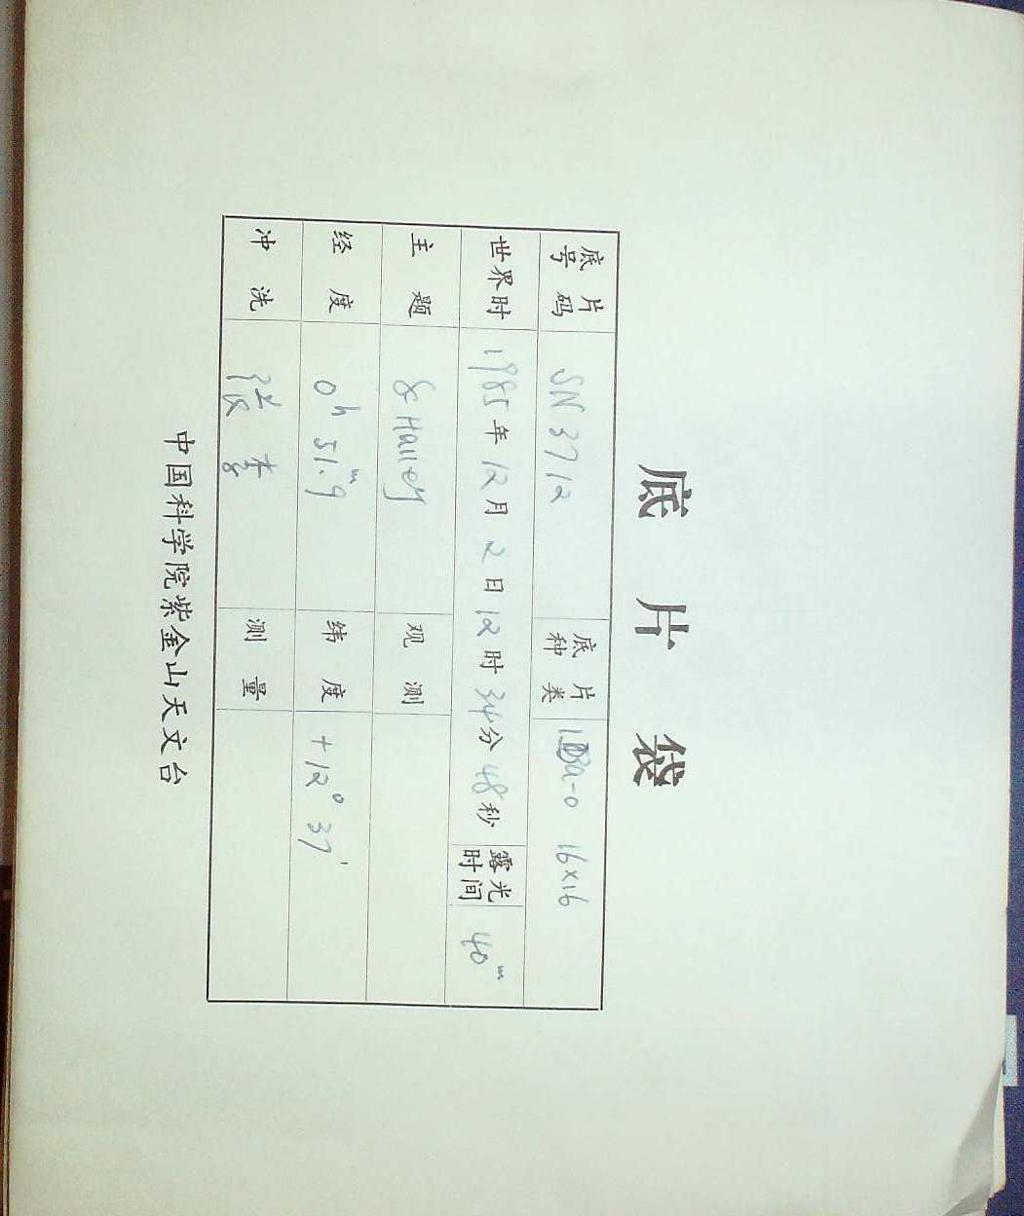 底片袋
底片号码 SN3712 底片种类 16×16
世界时 1985年12月2日12时34分48秒 露光时间 40m
主题 & Halley 观测
经度 0h 51.m9 纬度 +12°37′
冲洗 张 李 测量
中国科学院紫金山天文台